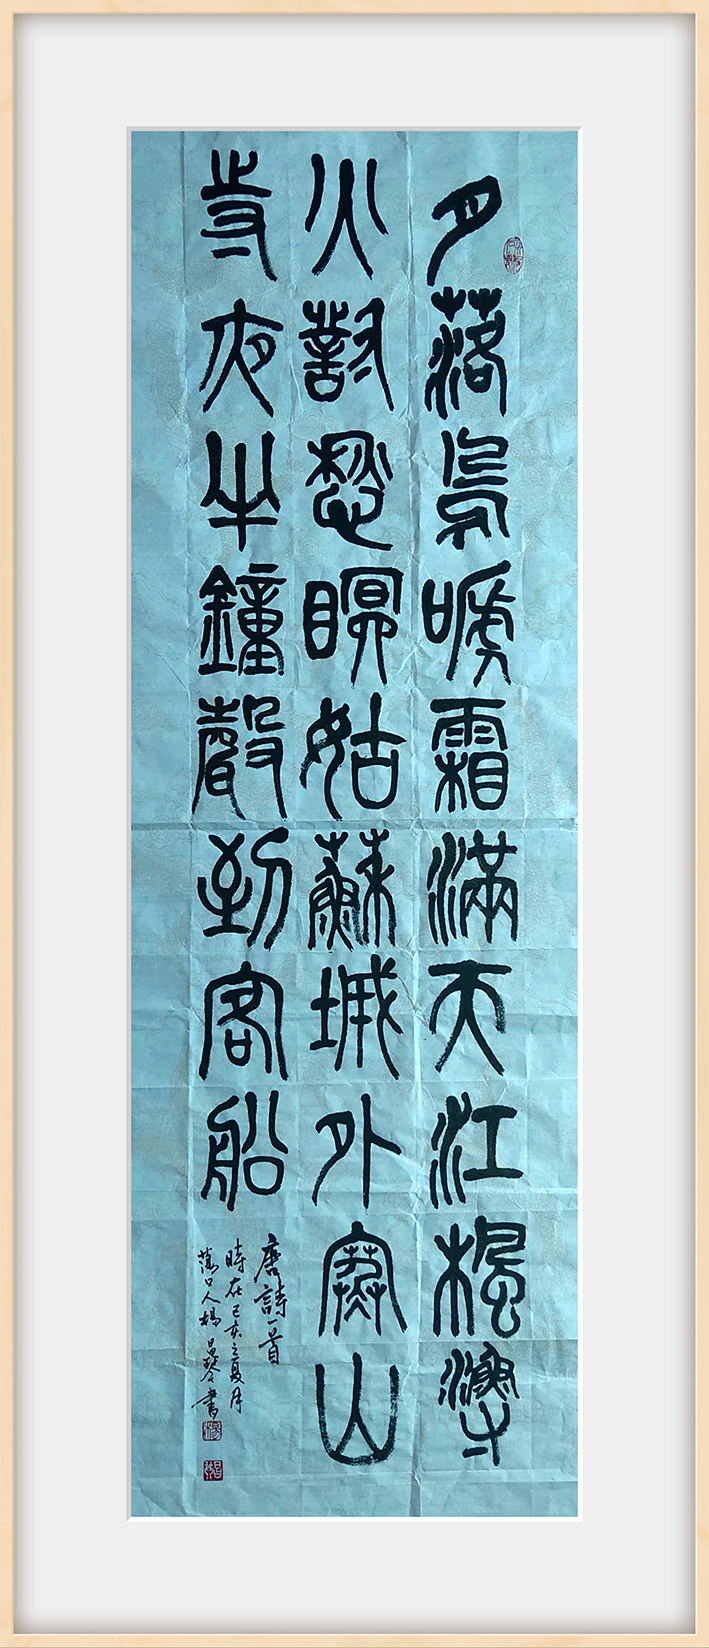 月落烏嗁霜滿天江楓漁
火對愁瞑姑蘇城外寒山
寺夜半鐘聲到客船
唐詩一首
時在己亥之夏月
蕩口人楊書